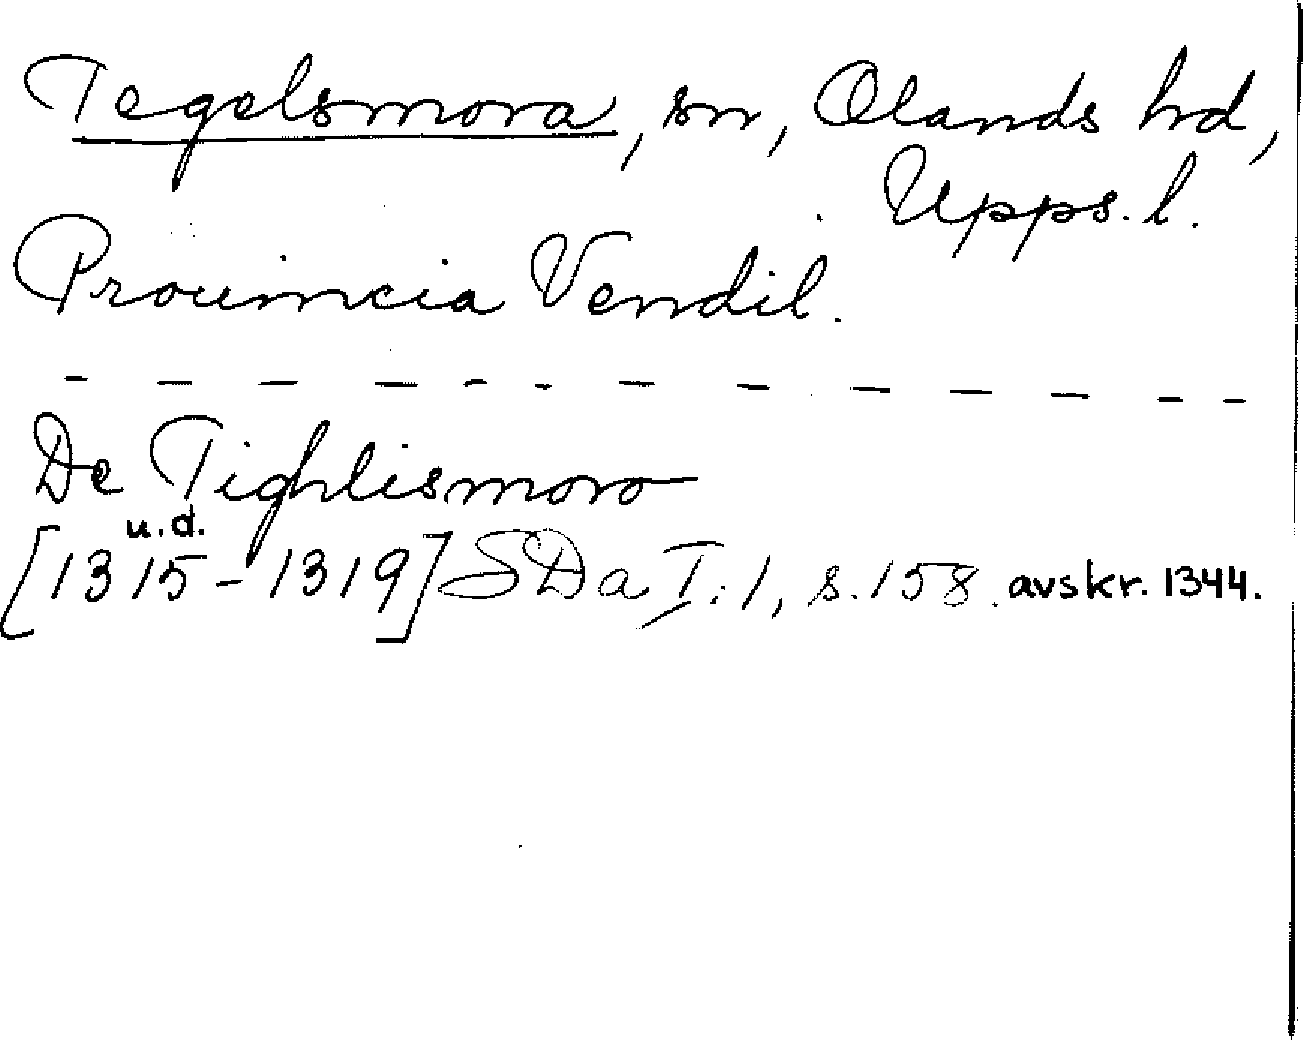 Tegelsmora, sn, Olands hd,
Upps. l.
Prouincia Vendil.
- - - - - - - - - - - - -
De Tighlismoro
u.d.
[1315-1319] SDa I:1, s. 158. avskr. 1344.